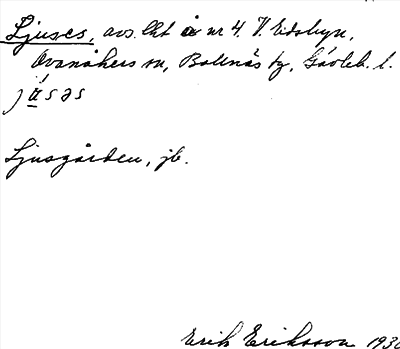 Ljuses, avs. lht å nr 4. V. Edsbyn,
Ovanåkers sn, Bollnäs tg, Gävleb. l.
Ljusgården, jb.
Erik Eriksson 1930